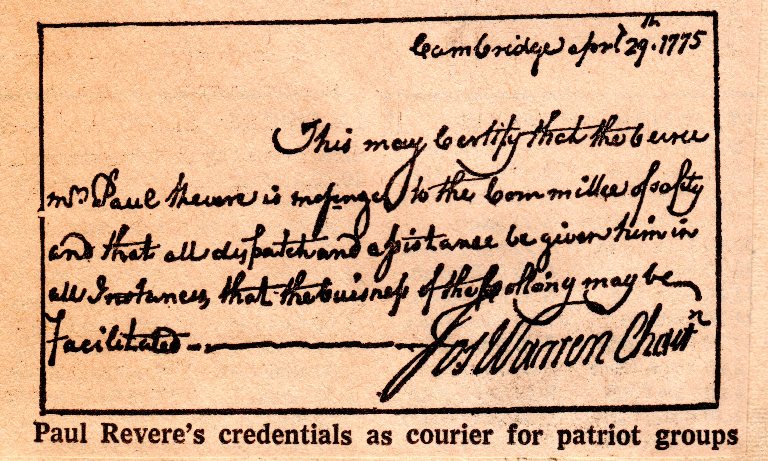 Cambridge aprl 29th. 1775
This may Certify that the bearer
mr Paul Revere is messenger to the Committee of safety
and that all dispatch and assistance be given him in
all Instances, that the buisness of the Collony may be
Facilitated
Jos Warren Chairn
Paul Revere's credentials as courier for patriot groups